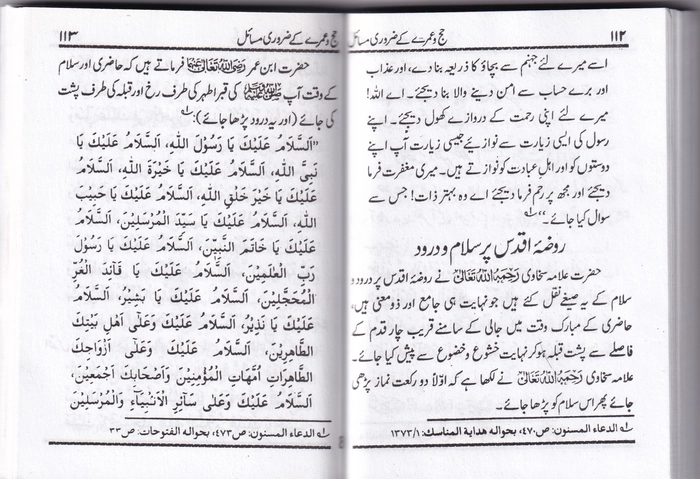 ۱۱۲ حج و عمرے کے ضروری مسائل
اسے میرے لئے جہنم سے بچاؤ کا ذریعہ بنا دے، اور عذاب
اور برے حساب سے امن دینے والا بنا دیجئے۔ اے اللہ!
میرے لئے اپنی رحمت کے دروازے کھول دیجئے۔ اپنے
رسول کی ایسی زیارت سے نوازئیے جیسی زیارت آپ اپنے
دوستوں کو اور اہلِ عبادت کو نوازتے ہیں۔ میری مغفرت فرما
دیجئے اور مجھ پر رحم فرما دیجئے اے وہ بہتر ذات! جس سے
سوال کیا جائے۔‘‘ ؎۱
روضۂ اقدس پر سلام و درود
حضرت علامہ سخاوی رَحِمَہُ اللہُ تَعَالیٰ نے روضۂ اقدس پر درود و
سلام کے یہ صیغے نقل کئے ہیں جو نہایت ہی جامع اور ذو معنی ہیں،
حاضری کے مبارک وقت میں جالی کے سامنے قریب چار قدم کے
فاصلے سے پشت قبلہ ہو کر نہایت خشوع و خضوع سے پیش کیا جائے۔
علامہ سخاوی رَحِمَہُ اللہُ تَعَالیٰ نے لکھا ہے کہ اوّلاً دو رکعت نماز پڑھی
جائے پھر اس سلام کو پڑھا جائے۔
؎۱ الدعاء المسنون: ص۴۷۰، بحوالہ ھدایة المناسک: ۱/۱۳۷۳
حج و عمرے کے ضروری مسائل ۱۱۳
حضرت ابن عمر رضی اللہ تعالیٰ عنہ فرماتے ہیں کہ حاضری اور سلام
کے وقت آپ صلی اللہ علیہ وسلم کی قبر اطہر کی طرف رخ اور قبلہ کی طرف پشت
کی جائے (اور یہ درود پڑھا جائے): ؎۱
”اَلسَّلَامُ عَلَيْكَ يَا رَسُوْلَ اللهِ، اَلسَّلَامُ عَلَيْكَ يَا
نَبِيَّ اللهِ، اَلسَّلَامُ عَلَيْكَ يَا خَيْرَةَ اللهِ، اَلسَّلَامُ
عَلَيْكَ يَا خَيْرَ خَلْقِ اللهِ، اَلسَّلَامُ عَلَيْكَ يَا حَبِيْبَ
اللهِ، اَلسَّلَامُ عَلَيْكَ يَا سَيِّدَ الْمُرْسَلِيْنَ، اَلسَّلَامُ
عَلَيْكَ يَا خَاتَمَ النَّبِيّٖنَ، اَلسَّلَامُ عَلَيْكَ يَا رَسُوْلَ
رَبِّ الْعٰلَمِيْنَ، اَلسَّلَامُ عَلَيْكَ يَا قَائِدَ الْغُرِّ
الْمُحَجَّلِيْنَ، اَلسَّلَامُ عَلَيْكَ يَا بَشِيْرُ، اَلسَّلَامُ
عَلَيْكَ يَا نَذِيْرُ، اَلسَّلَامُ عَلَيْكَ وَعَلٰى اَهْلِ بَيْتِكَ
الطَّاهِرِيْنَ، اَلسَّلَامُ عَلَيْكَ وَعَلٰى اَزْوَاجِكَ
الطَّاهِرَاتِ اُمَّهَاتِ الْمُؤْمِنِيْنَ وَاَصْحَابِكَ اَجْمَعِيْنَ،
اَلسَّلَامُ عَلَيْكَ وَعَلٰى سَآئِرِ الْاَنْبِيَآءِ وَالْمُرْسَلِيْنَ
؎۱ الدعاء المسنون: ص۴۷۳، بحوالہ الفتوحات: ص۳۳